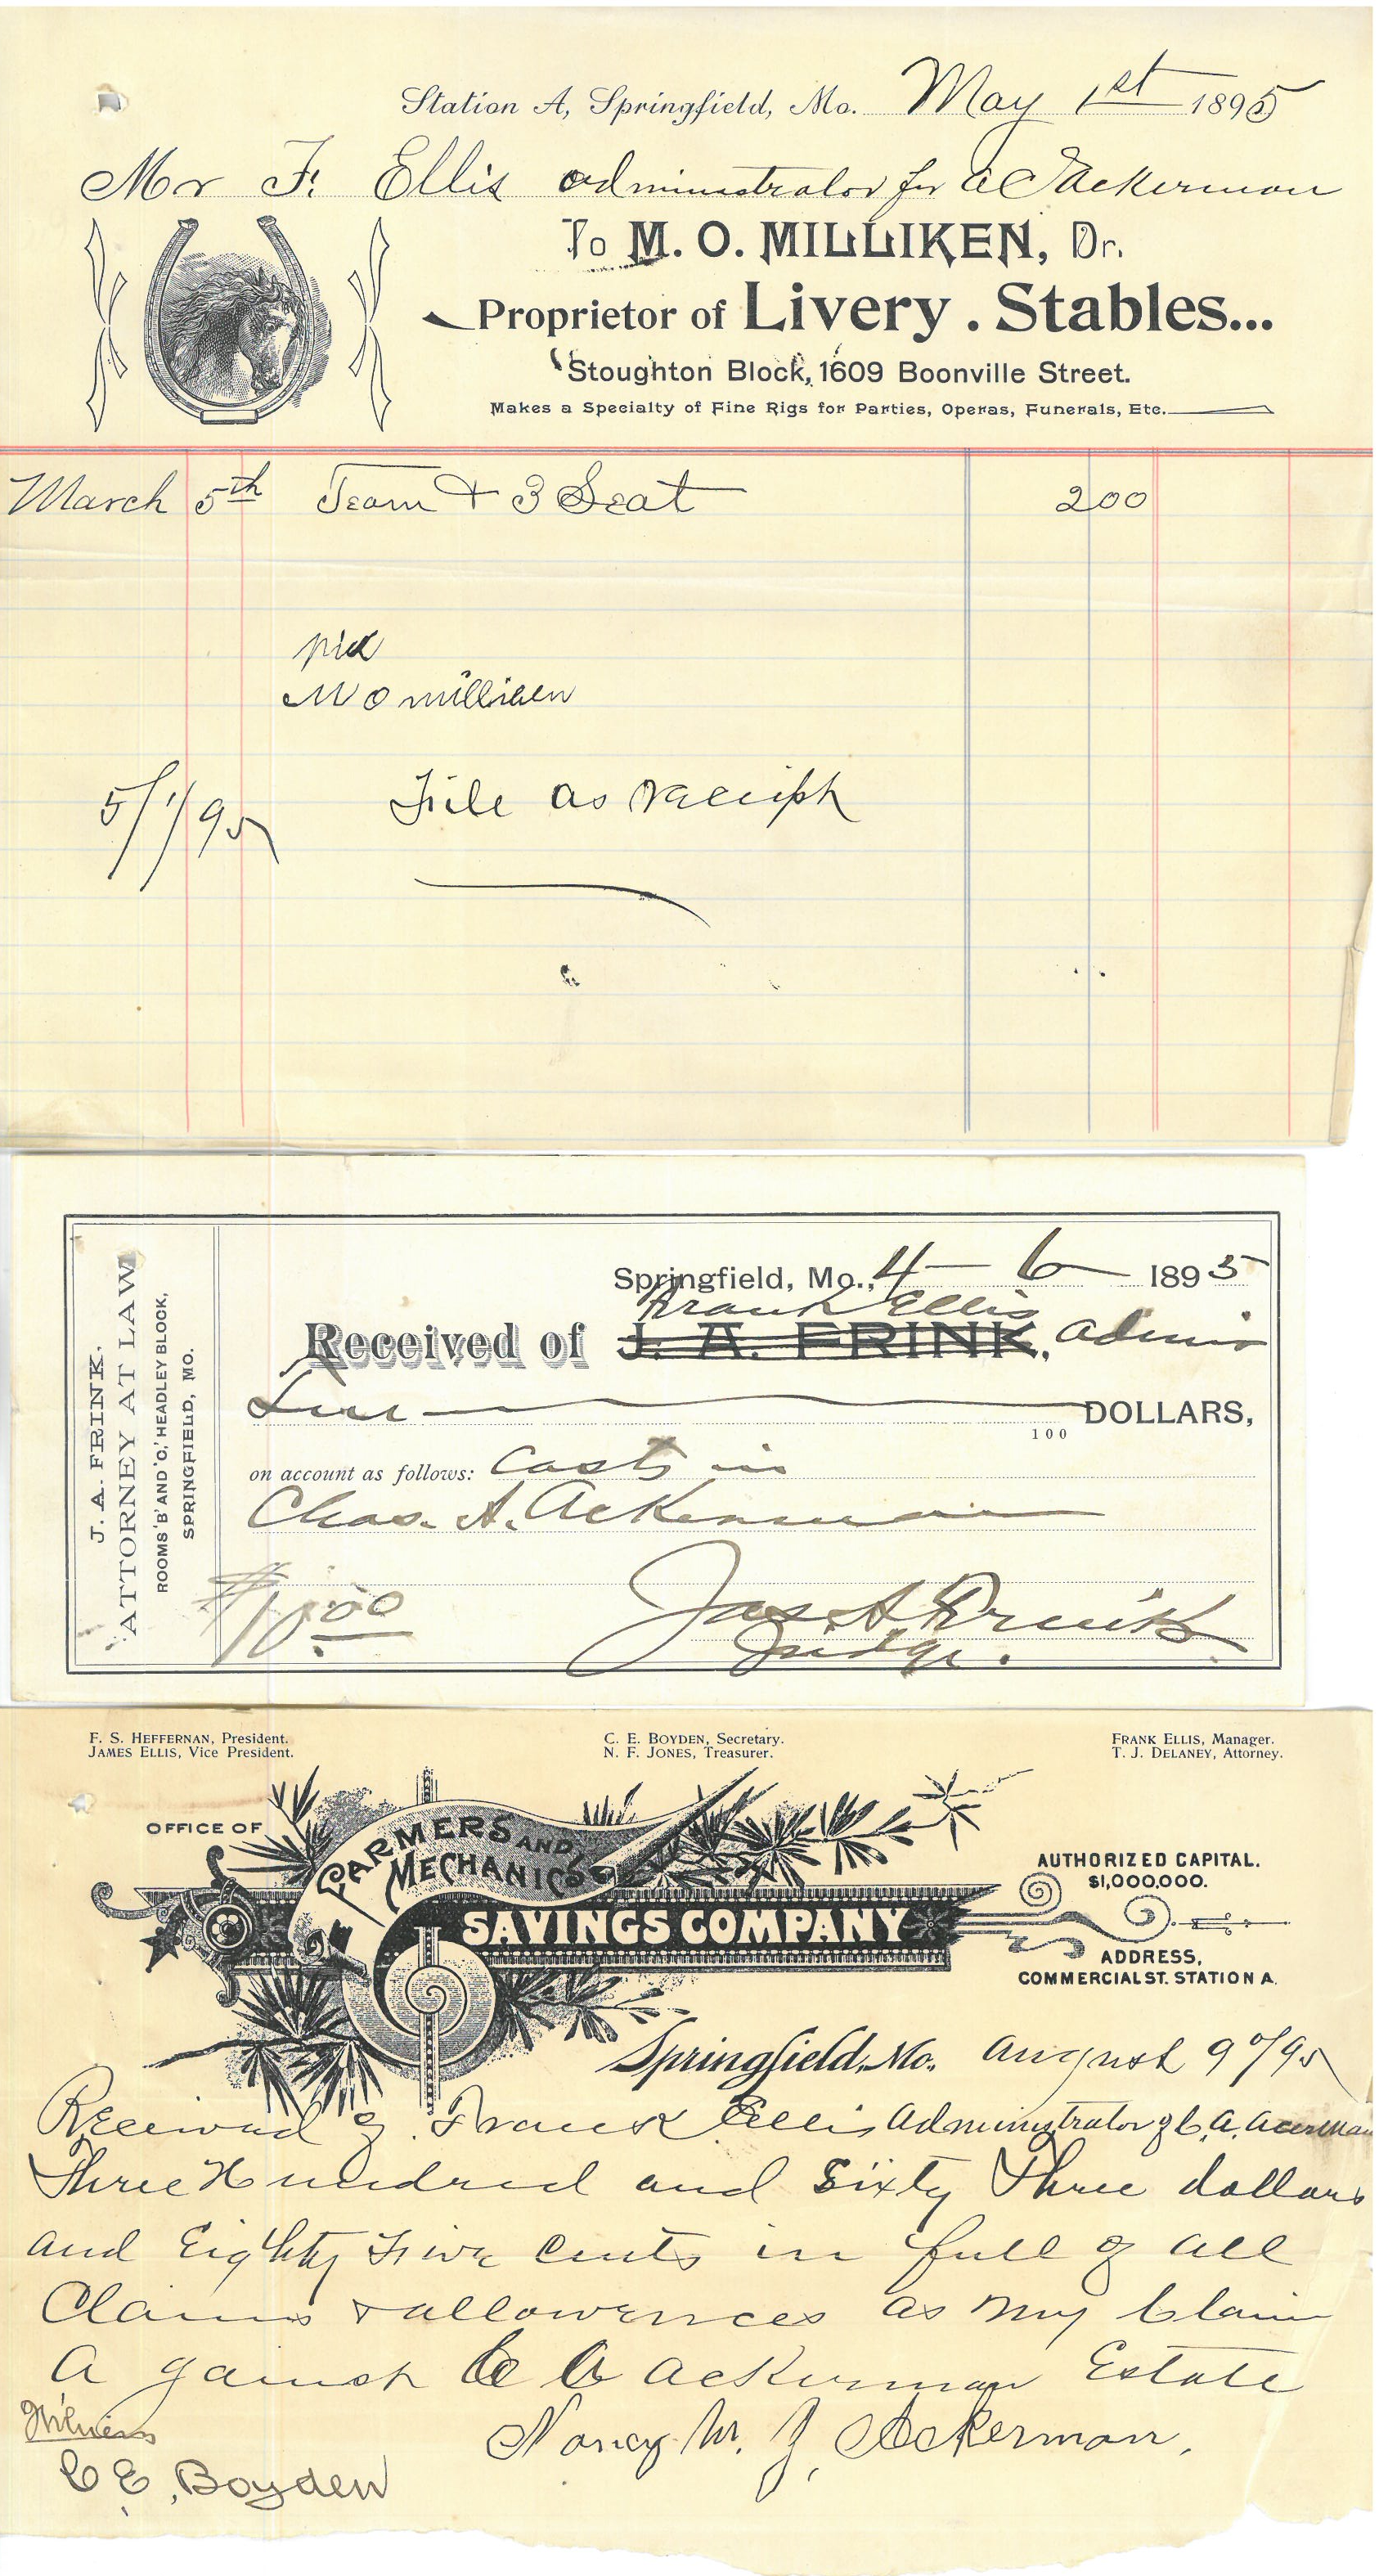 Station A, Springfield, Mo. May 1st 1895
Mr F. Ellis administrator for Ackerman
To M. O. MILLIKEN, Dr.
Proprietor of Livery . Stables...
Stoughton Block, 1609 Boonville Street.
Makes a Specialty of Fine Rigs for Parties, Operas, Funerals, Etc.
March 5th Team + 3 Seat 200
pid
M O milliken
5/1/95 File as receipt
J. A. FRINK,
ATTORNEY AT LAW
ROOMS 'B' AND 'C,' HEADLEY BLOCK,
SPRINGFIELD, MO.
Springfield, Mo., 4-6 1895
Frank Ellis
Received of J. A. FRINK, Admin
DOLLARS,
100
on account as follows: Costs in
Chas. A. Ackerman
$10.00
Jas A Frink
Judge.
F. S. HEFFERNAN, President.
JAMES ELLIS, Vice President.
C. E. BOYDEN, Secretary.
N. F. JONES, Treasurer.
FRANK ELLIS, Manager.
T. J. DELANEY, Attorney.
OFFICE OF
FARMERS AND
MECHANICS
SAVINGS COMPANY
AUTHORIZED CAPITAL.
$1,000,000.
ADDRESS,
COMMERCIAL ST. STATION A.
Springfield, Mo. August 9th/95
Received of Frank Ellis Administrator of C. A. Acerman
Three Hundred and Sixty Three dollars
and Eighty Five Cents in full of all
Claims & allowences as my Claim
A gainst C A Ackerman Estate
Nancy M. J. Ackerman.
Witness
C E, Boyden